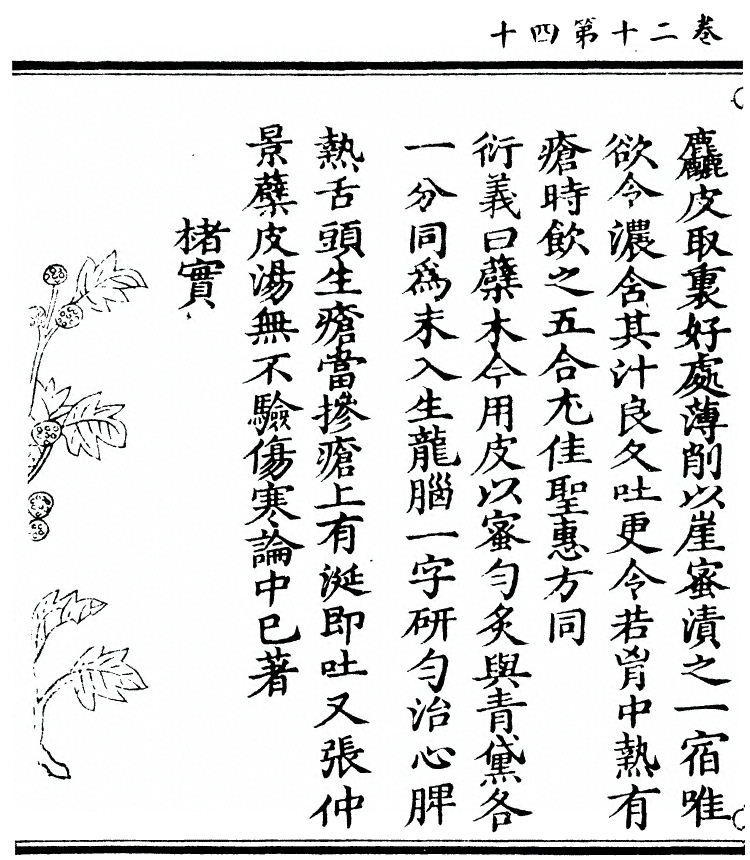 卷二十第四十
麤皮取裏好處薄削以崖蜜漬之一宿唯
欲令濃含其汁良久吐更令若胷中熱有
瘡時飲之五合尤佳聖惠方同
衍義曰蘗木今用皮以蜜勻炙與青黛各
一分同為末入生龍腦一字研勻治心脾
熱舌頭生瘡當摻瘡上有涎即吐又張仲
景蘗皮湯無不驗傷寒論中已著
楮實